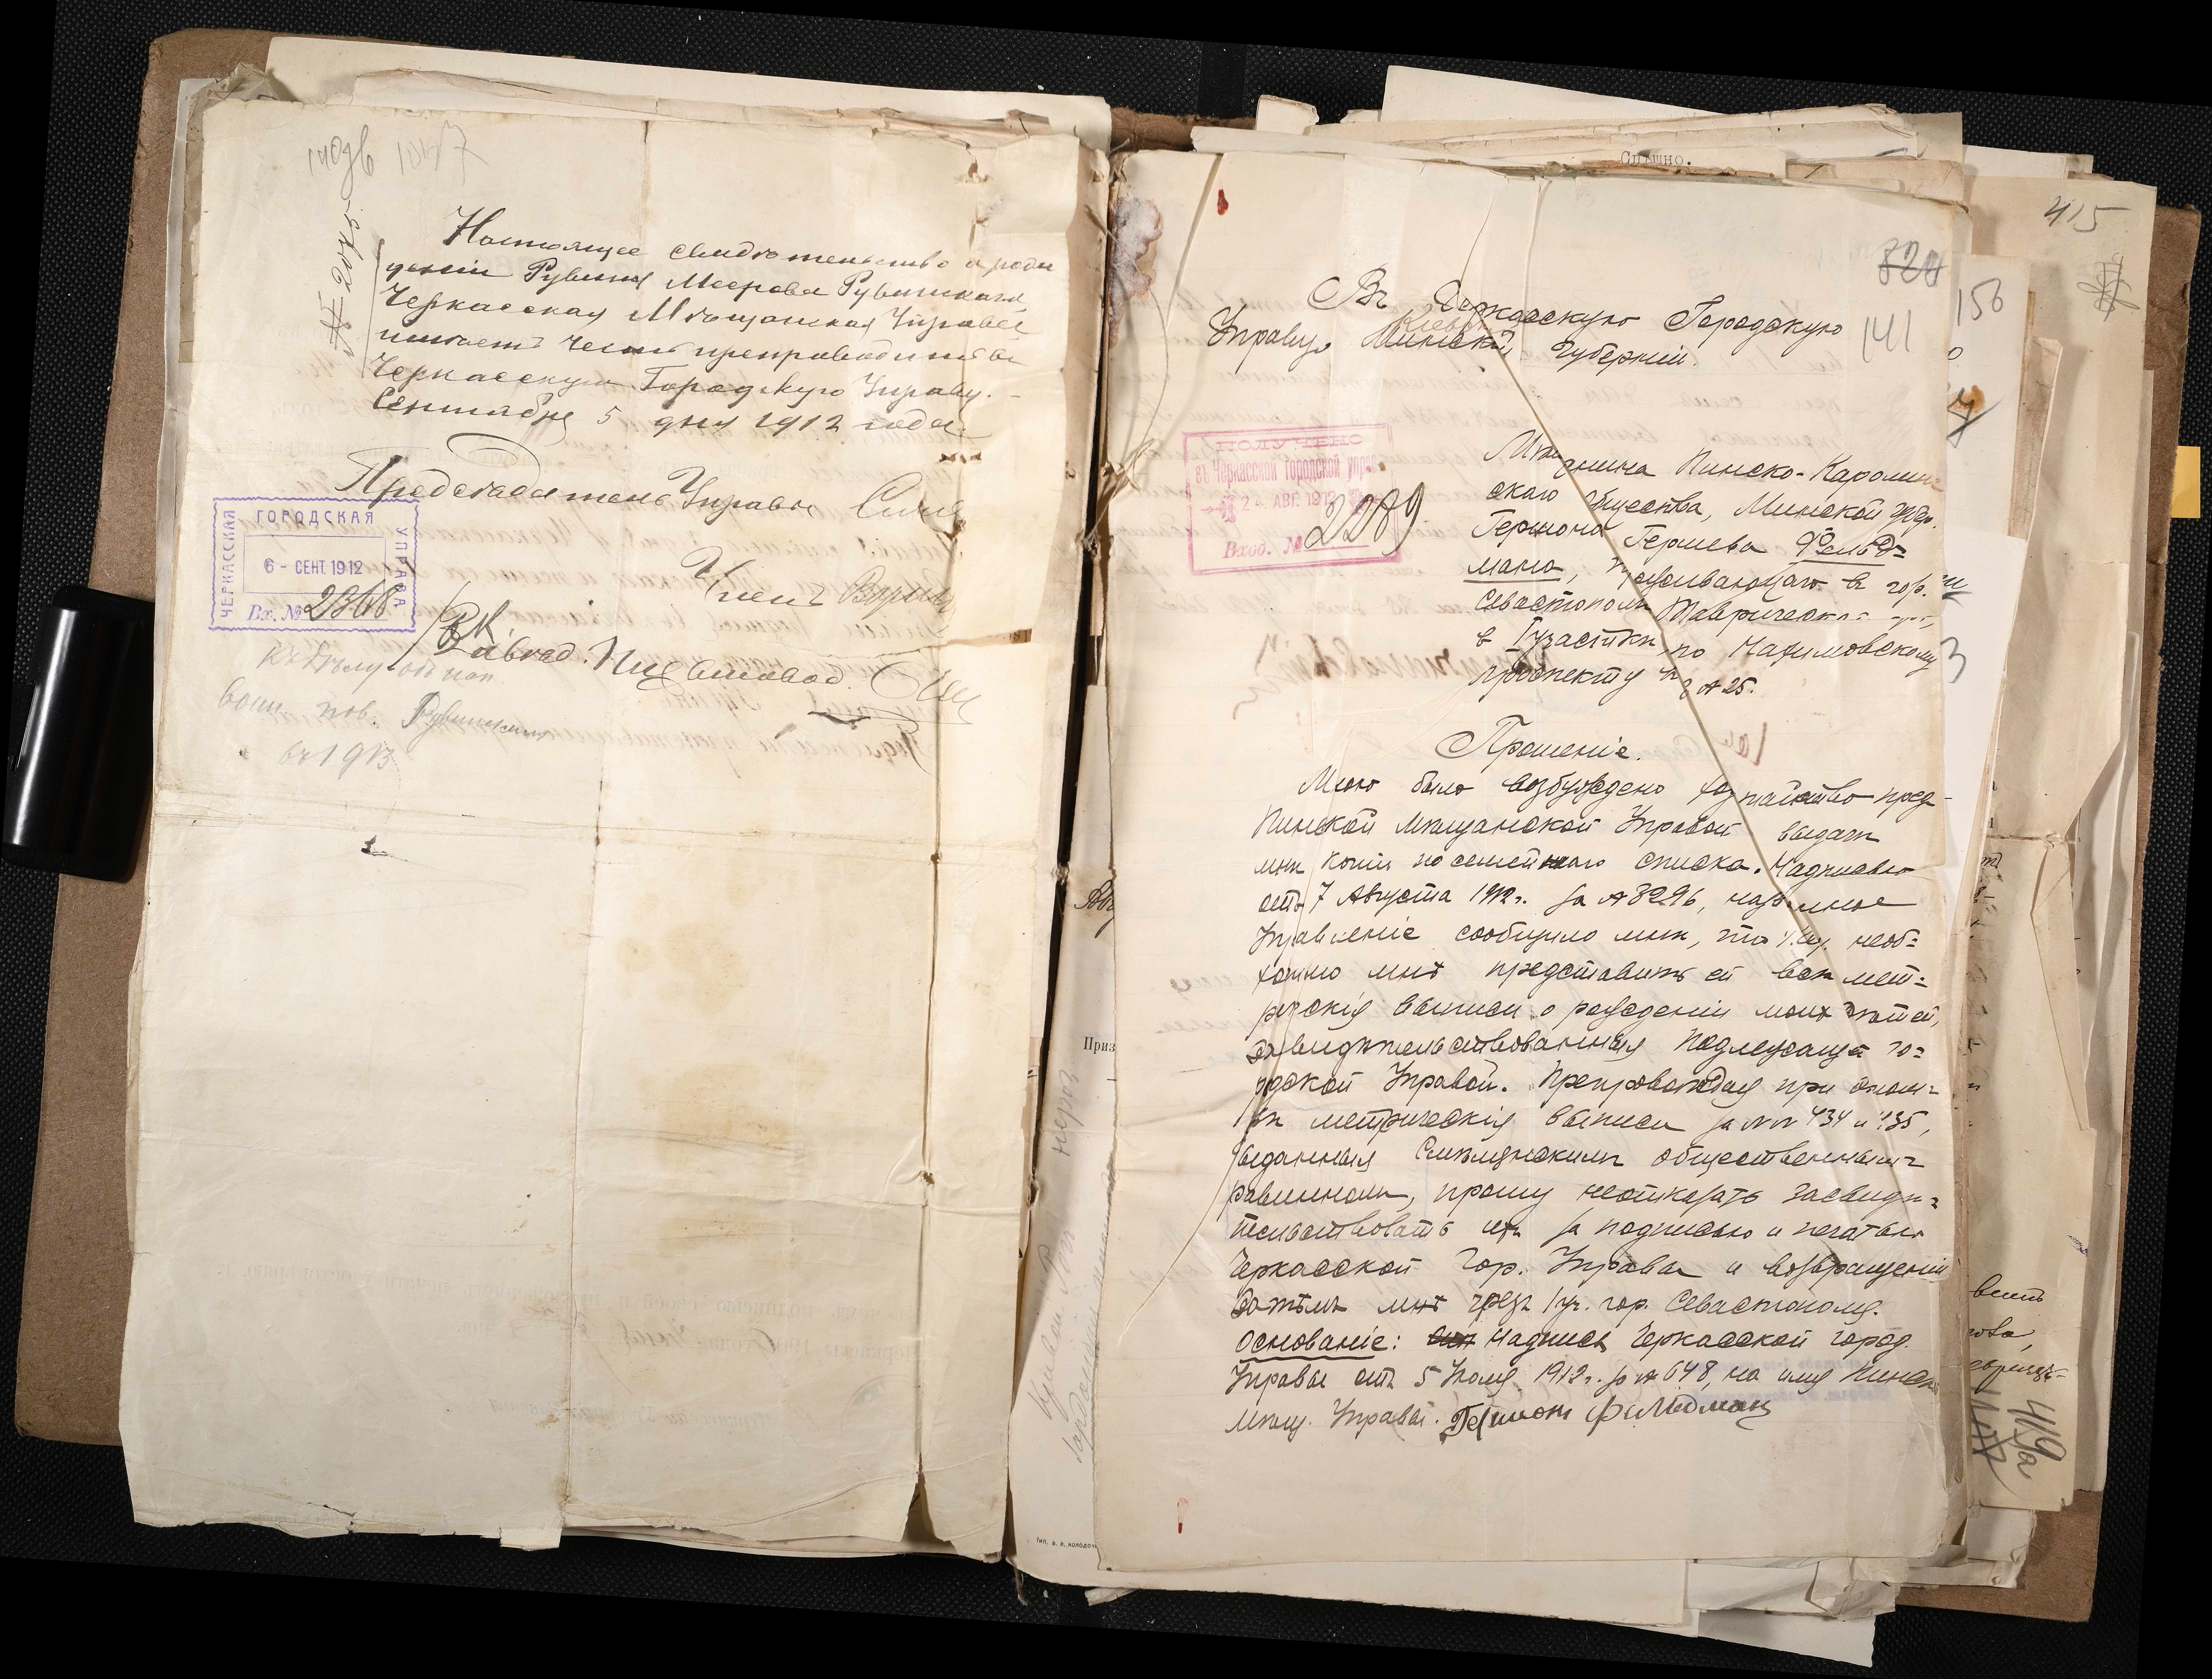 140зв
№ 2075.
Настоящее свидѣтельство о рож
деніи Рувина Меерова Рувинскаго
Черкасская Мѣщанская Управа
имѣетъ честь препроводить въ
Черкасскую Городскую Управу.
Сентября 5 дня 1912 года
Предсѣдатель Управы
Членъ
ЧЕРКАССКАЯ ГОРОДСКАЯ УПРАВА
6 - СЕНТ. 1912
Вх. № 2366
Къ дѣлу объ исп.
воин. пов. Рувинскимъ
въ 1913
Приз
Спѣшно.
415
820
141
150
Въ Черкасскую Городскую
Управу, Минской губерніи.
ПОЛУЧЕНО
въ Черкасской городской управ
24 АВГ. 1912
Вход. № 2289
Мѣщанина Пинско-Каролин
скаго общества, Минской губ.
Гершона Гершева Фельд=
мана, проживающаго въ гор.
Севастополѣ Таврической
в I участкѣ, по Нахимовскому
проспекту № 25.
Прошеніе.
Мною было возбуждено ходатайство пред
Пинской мѣщанской Управой выдачи
мнѣ копіи посемейнаго списка. Надписью
отъ 7 Августа 1912 г. за № 3296, названное
Управленіе сообщило мнѣ, что необ=
ходимо мнѣ представить ей всѣ мет=
рическія выписи о рожденіи моихъ дѣтей,
засвидѣтельствованныя подлежащей го=
родской Управой. Препровождая при этом
метрическія выписи за №№ 434 и 435,
выданныя Смѣлянскимъ общественнымъ
раввиномъ, прошу неотказать засвидѣ=
тельствовать ихъ за подписью и печатью
Черкасской Гор. Управы и возвращеніи
затѣмъ мнѣ чрезъ 1 уч. гор. Севастополя.
Основаніе: надпись Черкасской город.
Управы отъ 5 Іюля 1912 г. за № 648, на имя Пинск
мѣщ. Управы. Гершонъ Фельдманъ
419а